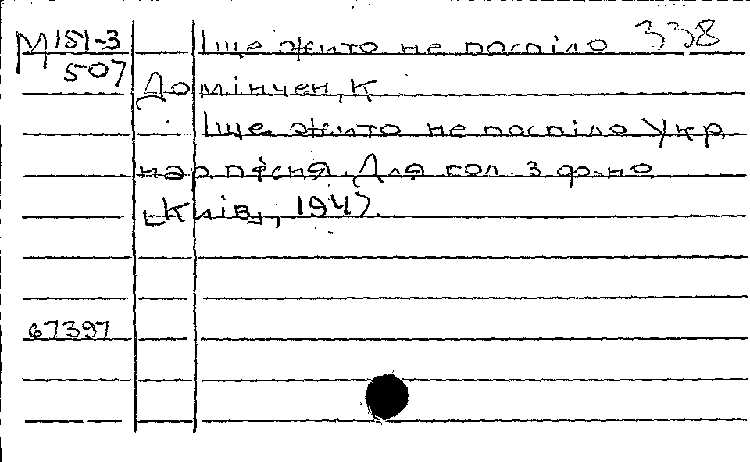 М 151-3 Іще жито не поспіло 338
507
Домінчен, К
Іще жито не поспіло Укр.
нар пісня. Для гол з ф-но
[Київ], 1947.
67397